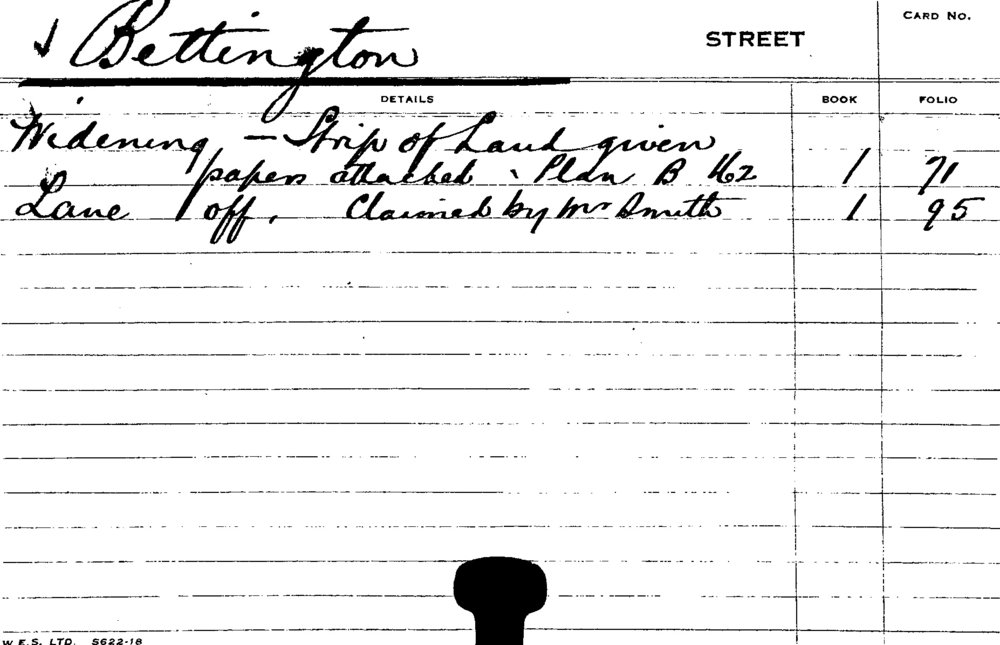 ✓ Bettington STREET CARD NO.
DETAILS BOOK FOLIO
Widening — Strip of Land given
papers attached. Plan B 462 1 71
Lane off. Claimed by Mr Smith 1 95
W.E.S. LTD. S622-18